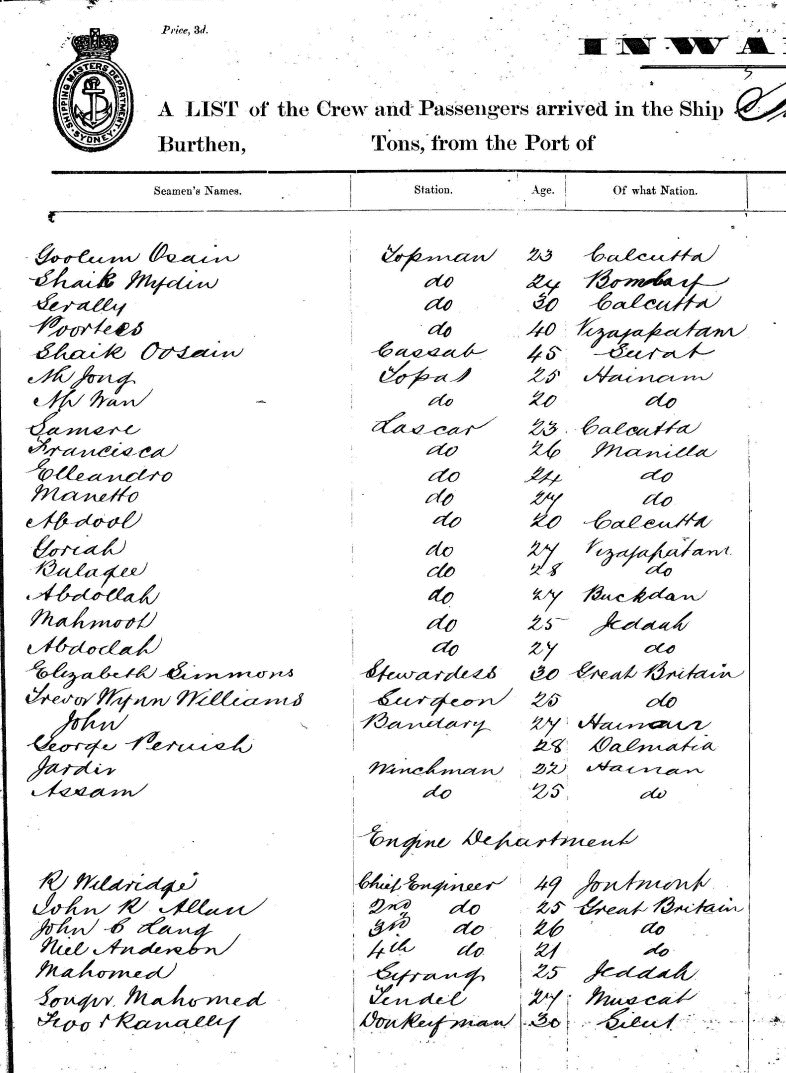 Price, 3d.
SHIPPING MASTERS DEPARTMENT SYDNEY
INWA
A LIST of the Crew and Passengers arrived in the Ship
Burthen, Tons, from the Port of
Seamen's Names. Station. Age. Of what Nation.
Goolum Osain Topman 23 Calcutta
Shaik Mydin do 24 Bombay
Serally do 30 Calcutta
Poortees do 40 Vizajapatam
Shaik Oosain Cassab 45 Surat
Ah Jong Topas 25 Hainam
Ah Wan do 20 do
Samsre Lascar 23 Calcutta
Francisca do 26 Manilla
Elleandro do 24 do
Manetto do 27 do
Abdool do 20 Calcutta
Goriah do 27 Vizajapatam
Bulagee do 28 do
Abdollah do 27 Buckdan
Mahmoot do 25 Jeddah
Abdodah do 27 do
Elizabeth Simmons Stewardess 30 Great Britain
Trevor Wynn Williams Surgeon 25 do
John Bandary 27 Hainan
George Peruish 28 Dalmatia
Jardin Winchman 22 Hainan
Assam do 25 do
Engine Department
R Wildridge Chief Engineer 49
John R Allan 2nd do 25 Great Britain
John C Lang 3rd do 26 do
Niel Anderson 4th do 21 do
Mahomed Syrang 25 Jeddah
Mahomed Tendel 27 Muscat
Donkeyman 30